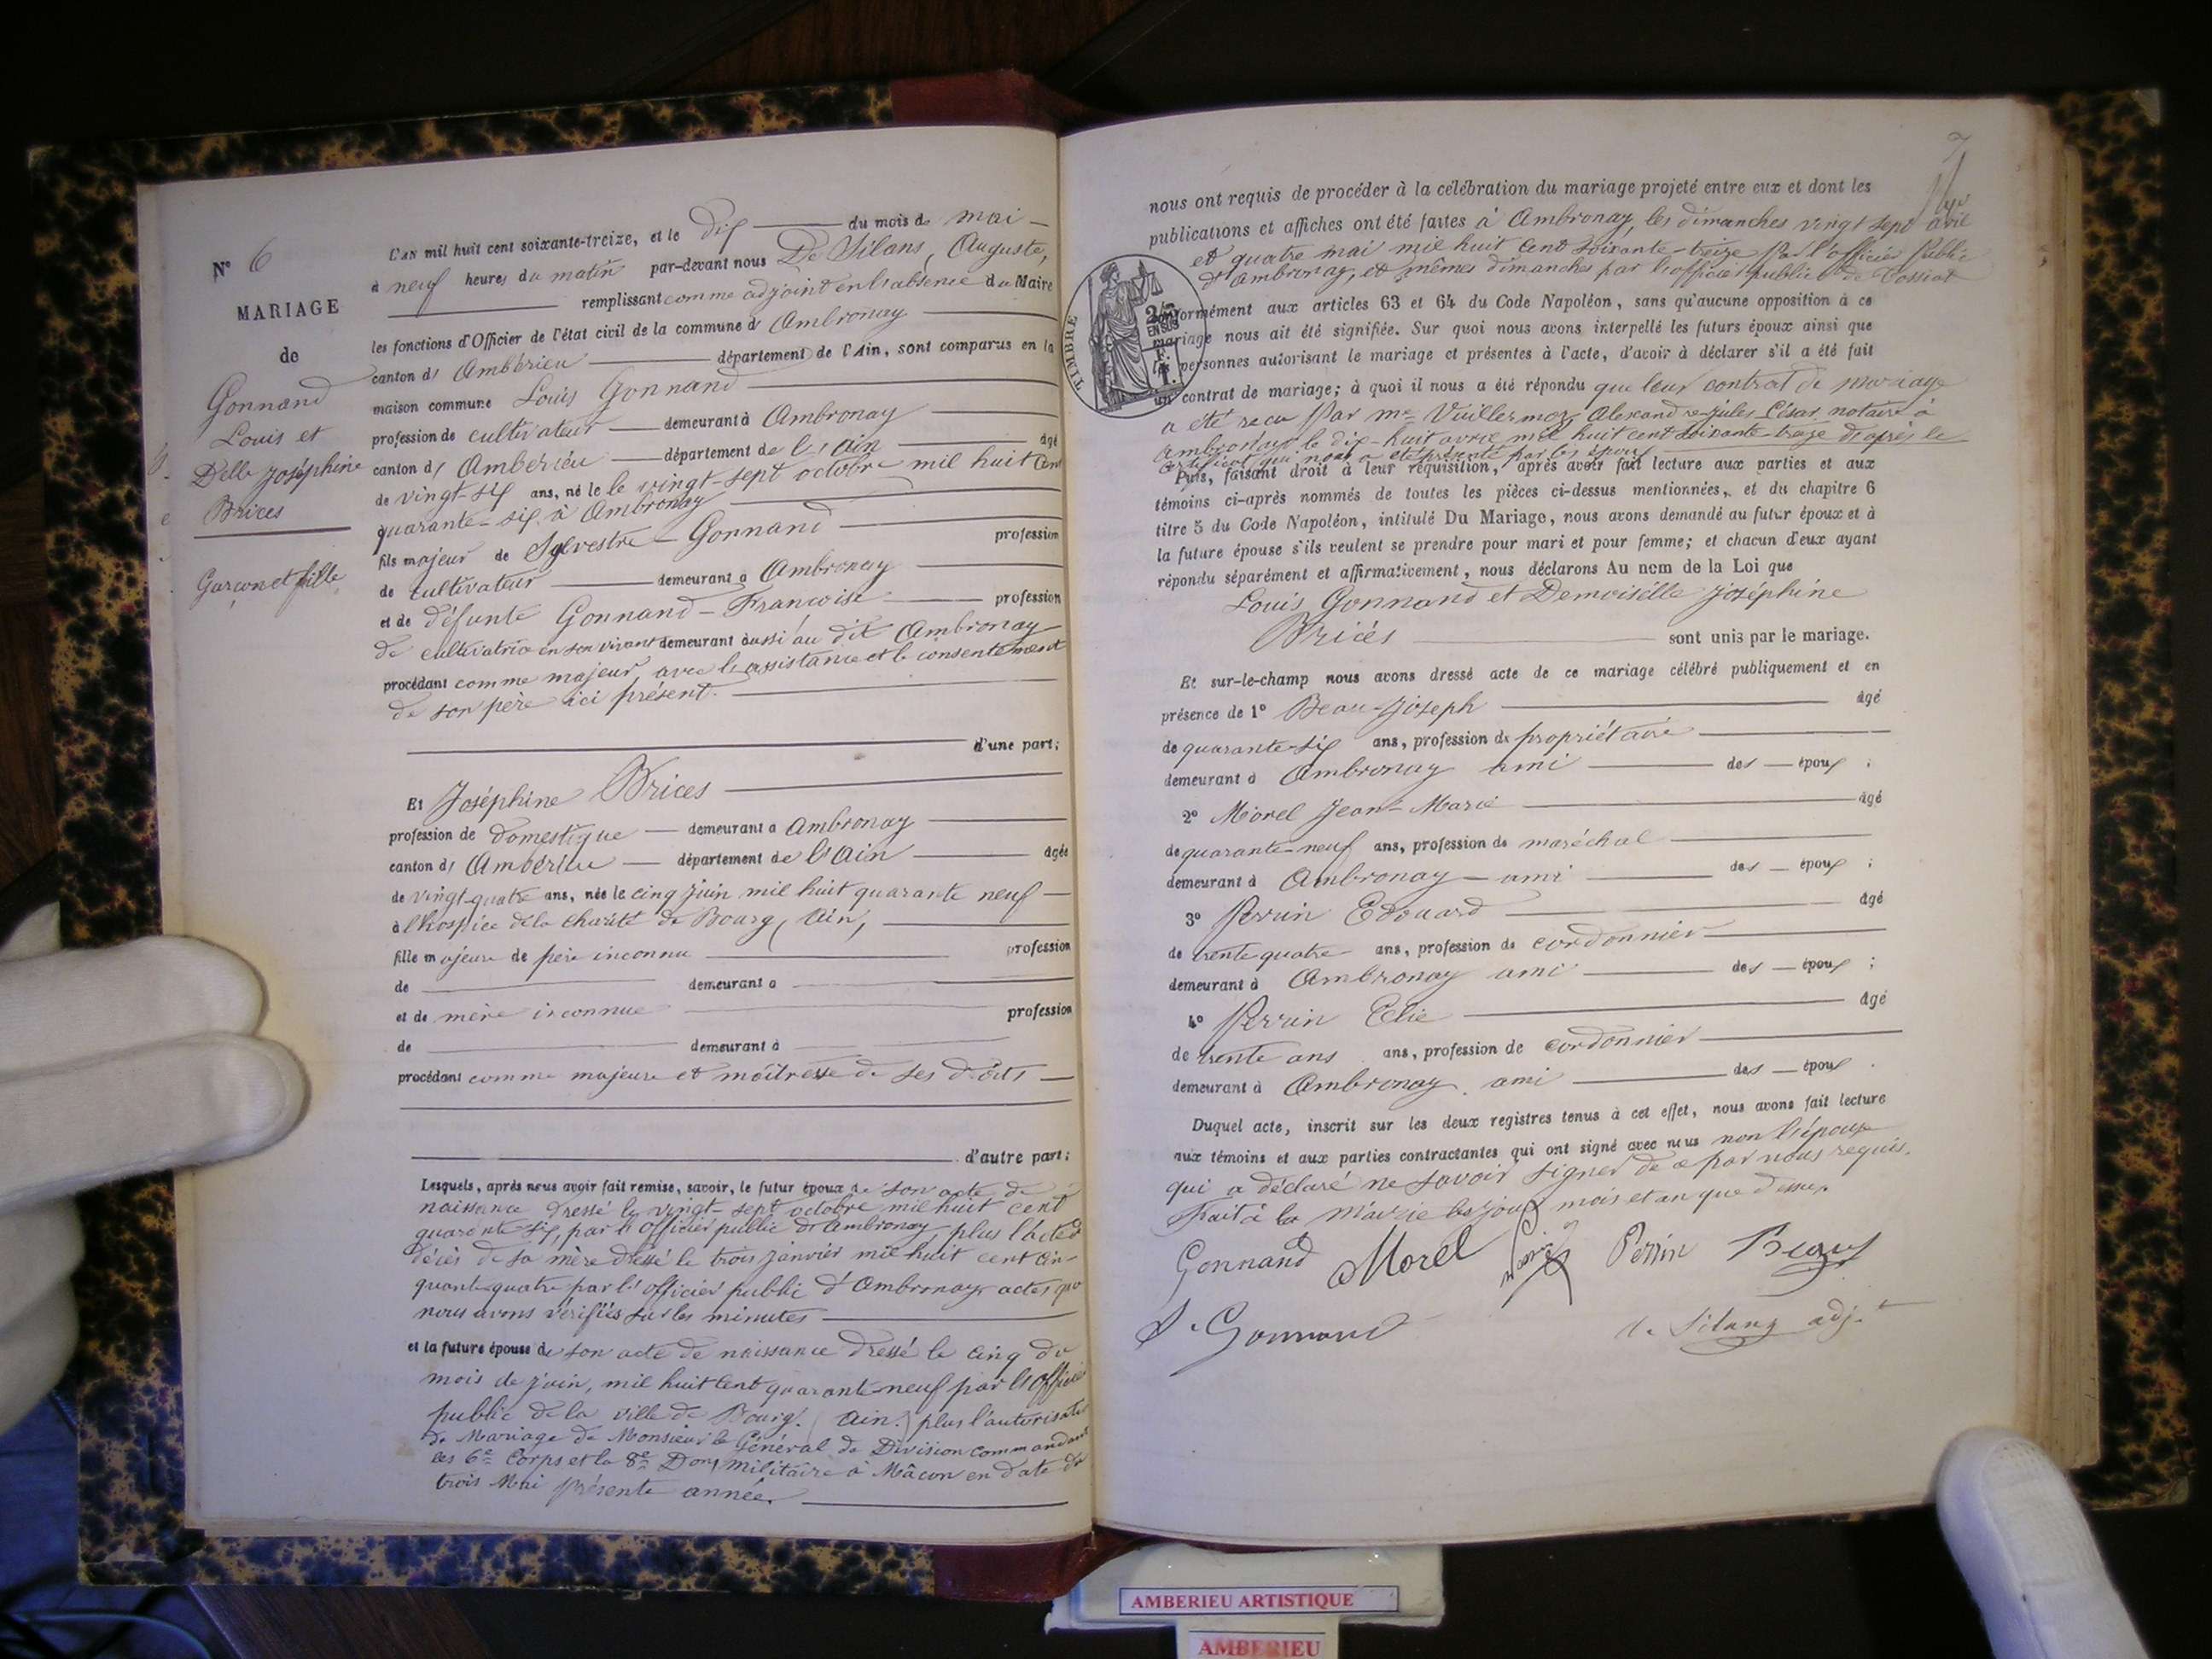 N° 6
MARIAGE
de
Gonnand
Louis et
Delle Joséphine
Brices
Garçon et fille
L'AN mil huit cent soixante-treize, et le dix du mois de mai
à neuf heures du matin par-devant nous De Silans, Auguste,
remplissant comme adjoint en l'absence du Maire
les fonctions d'Officier de l'état civil de la commune d' Ambronay
canton d' Ambérieu département de l'Ain, sont comparus en la
maison commune Louis Gonnand
profession de cultivateur demeurant à Ambronay
canton d' Ambérieu département de l'ain âgé
de vingt-six ans, né le le vingt-sept octobre mil huit cent
quarante-six à Ambronay
fils majeur de Sylvestre Gonnand profession
de cultivateur demeurant a Ambronay
et de défunte Gonnand-Françoise profession
de cultivatrice en son vivant demeurant aussi au dit Ambronay
procédant comme majeur, avec l'assistance et le consentement
de son père ici présent.
d'une part;
Et Joséphine Brices
profession de domestique demeurant a Ambronay
canton d' Ambérieu département de l'Ain âgée
de vingt-quatre ans, née le cinq juin mil huit quarante neuf
à l'hospice de la charité de Bourg (Ain)
fille majeure de père inconnu profession
de demeurant a
et de mère inconnue profession
de demeurant à
procédant comme majeure et maîtresse de ses droits
d'autre part;
Lesquels, après nous avoir fait remise, savoir, le futur époux de son acte de
naissance dressé le vingt-sept octobre mil huit cent
quarante-six, par l'officier public d'Ambronay, plus l'acte de
décès de sa mère dressé le trois janvier mil huit cent cin-
quante-quatre par l'officier public d'Ambronay actes que
nous avons vérifiés sur les minutes
et la future épouse de son acte de naissance dressé le cinq du
mois de juin, mil huit cent quarante-neuf par l'officier
public de la ville de Bourg. (Ain.) plus l'autorisation
de Mariage de Monsieur le Général de Division commandant
les 6e Corps et la 8e Don militaire à Mâcon en date du
trois Mai présente année.
7
nous ont requis de procéder à la célébration du mariage projeté entre eux et dont les
publications et affiches ont été faites à Ambronay, les dimanches vingt sept avril
et quatre mai mil huit cent soixante-treize par l'officier public
d'Ambronay, et mêmes dimanches par l'officier public de Tossiat
conformément aux articles 63 et 64 du Code Napoléon, sans qu'aucune opposition à ce
mariage nous ait été signifiée. Sur quoi nous avons interpellé les futurs époux ainsi que
les personnes autorisant le mariage et présentes à l'acte, d'avoir à déclarer s'il a été fait
un contrat de mariage; à quoi il nous a été répondu que leur contrat de mariage
a été reçu par me Vuillermoz, Alexandre-Jules César notaire à
Ambronay le dix-huit avril mil huit cent soixante-treize d'après le
certificat qui nous a été présenté par les époux
TIMBRE
2/10
EN SUS
1 F.
Puis, faisant droit à leur réquisition, après avoir fait lecture aux parties et aux
témoins ci-après nommés de toutes les pièces ci-dessus mentionnées, et du chapitre 6
titre 5 du Code Napoléon, intitulé Du Mariage, nous avons demandé au futur époux et à
la future épouse s'ils veulent se prendre pour mari et pour femme; et chacun d'eux ayant
répondu séparément et affirmativement, nous déclarons Au nom de la Loi que
Louis Gonnand et Demoiselle Joséphine
Brices sont unis par le mariage.
Et sur-le-champ nous avons dressé acte de ce mariage célébré publiquement et en
présence de 1° Beau Joseph âgé
de quarante-six ans, profession de propriétaire
demeurant à Ambronay ami des époux;
2° Morel Jean-Marie âgé
de quarante-neuf ans, profession de maréchal
demeurant à Ambronay ami des époux;
3° Perrin Edouard âgé
de trente quatre ans, profession de cordonnier
demeurant à Ambronay ami des époux;
4° Perrin Elie âgé
de trente ans ans, profession de cordonnier
demeurant à Ambronay. ami des époux.
Duquel acte, inscrit sur les deux registres tenus à cet effet, nous avons fait lecture
aux témoins et aux parties contractantes qui ont signé avec nous non l'épouse
qui a déclaré ne savoir signer de ce par nous requis.
Fait à la Mairie les jour mois et an que dessus.
Gonnand Morel Perrin Beau
S. Gonnand
de Silans adjt
AMBERIEU ARTISTIQUE
AMBERIEU